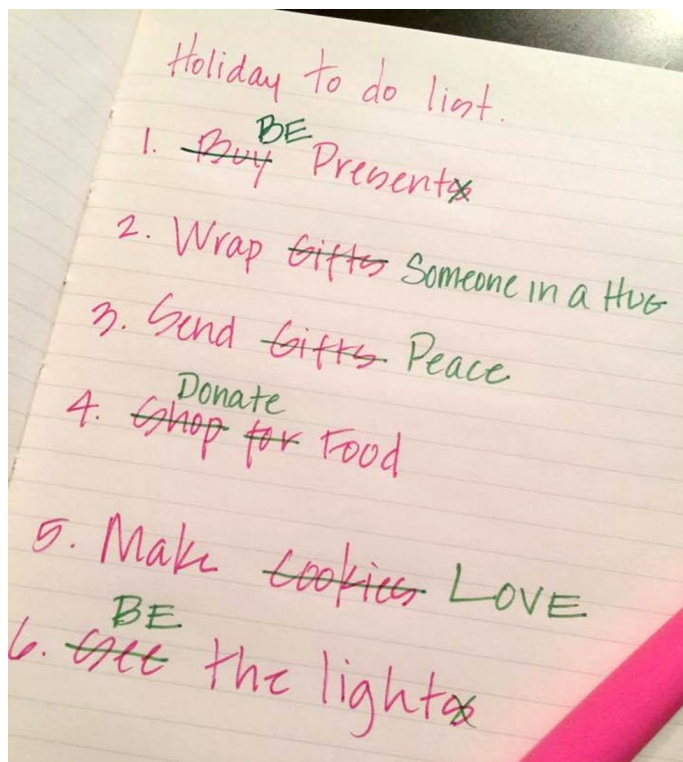 Holiday to do list.
BE
1. ~~Buy~~ Present~~s~~
2. Wrap ~~Gifts~~ Someone in a Hug
3. Send ~~Gifts~~ Peace
Donate
4. ~~Shop for~~ Food
5. Make ~~Cookies~~ LOVE
BE
6. ~~See~~ the light~~s~~